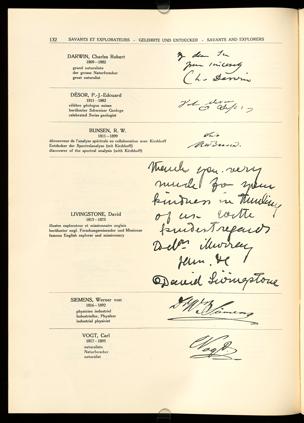 132 SAVANTS ET EXPLORATEURS - GELEHRTE UND ENTDECKER - SAVANTS AND EXPLORERS
DARWIN, Charles Robert
1809-1882
grand naturaliste
der grosse Naturforscher
great naturalist
My dear Sir
Yours sincerely
Ch. Darwin
DÉSOR, P.-J.-Edouard
1811-1882
célèbre géologue suisse
berühmter Schweizer Geologe
celebrated Swiss geologist
BUNSEN, R. W.
1811-1899
découvreur de l'analyse spectrale en collaboration avec Kirchhoff
Entdecker der Spectralanalyse (mit Kirchhoff)
discoverer of the spectral analysis (with Kirchhoff)
RWBunsen
LIVINGSTONE, David
1813-1873
illustre explorateur et missionnaire anglais
berühmter engl. Forschungsreisender und Missionar
famous English explorer and missionary
Thank you very
much for your
kindness in thinking
of us with
kindest regards
to Mrs. Murray
David Livingstone
SIEMENS, Werner von
1816-1892
physicien industriel
Industrieller, Physiker
industrial physicist
Siemens
VOGT, Carl
1817-1895
naturaliste
Naturforscher
naturalist
Vogt